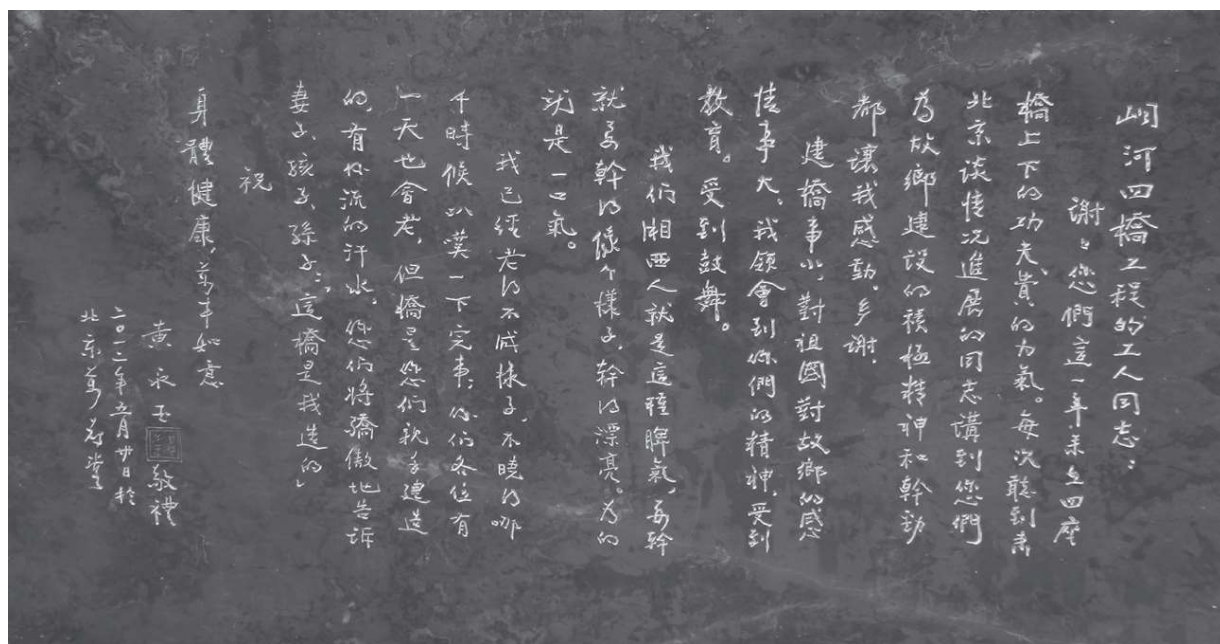 峒河四橋工程的工人同志：
謝々您們這一年來在四座
橋上下的功夫、費的力氣。每次聽到來
北京談情况進展的同志講到您們
為故鄉建設的積極精神和幹勁
都讓我感動。多謝.
建橋事小，對祖國對故鄉的感
情事大。我領會到你們的精神，受到
教育。受到鼓舞。
我们湘西人就是這種脾氣，要幹
就要幹得像个樣子，幹得漂亮。为的
就是一口氣。
我已經老得不成樣子，不曉得哪
个時候叭嘆一下完事；你们各位有
一天也會老，但橋是您们親手建造
的，有你流的汗水。您们將驕傲地告訴
妻子、孩子、孫子：「這橋是我造的」
祝
身體健康，萬事如意
黄永玉 敬禮
二〇一二年五月廿日於
北京萬荷堂